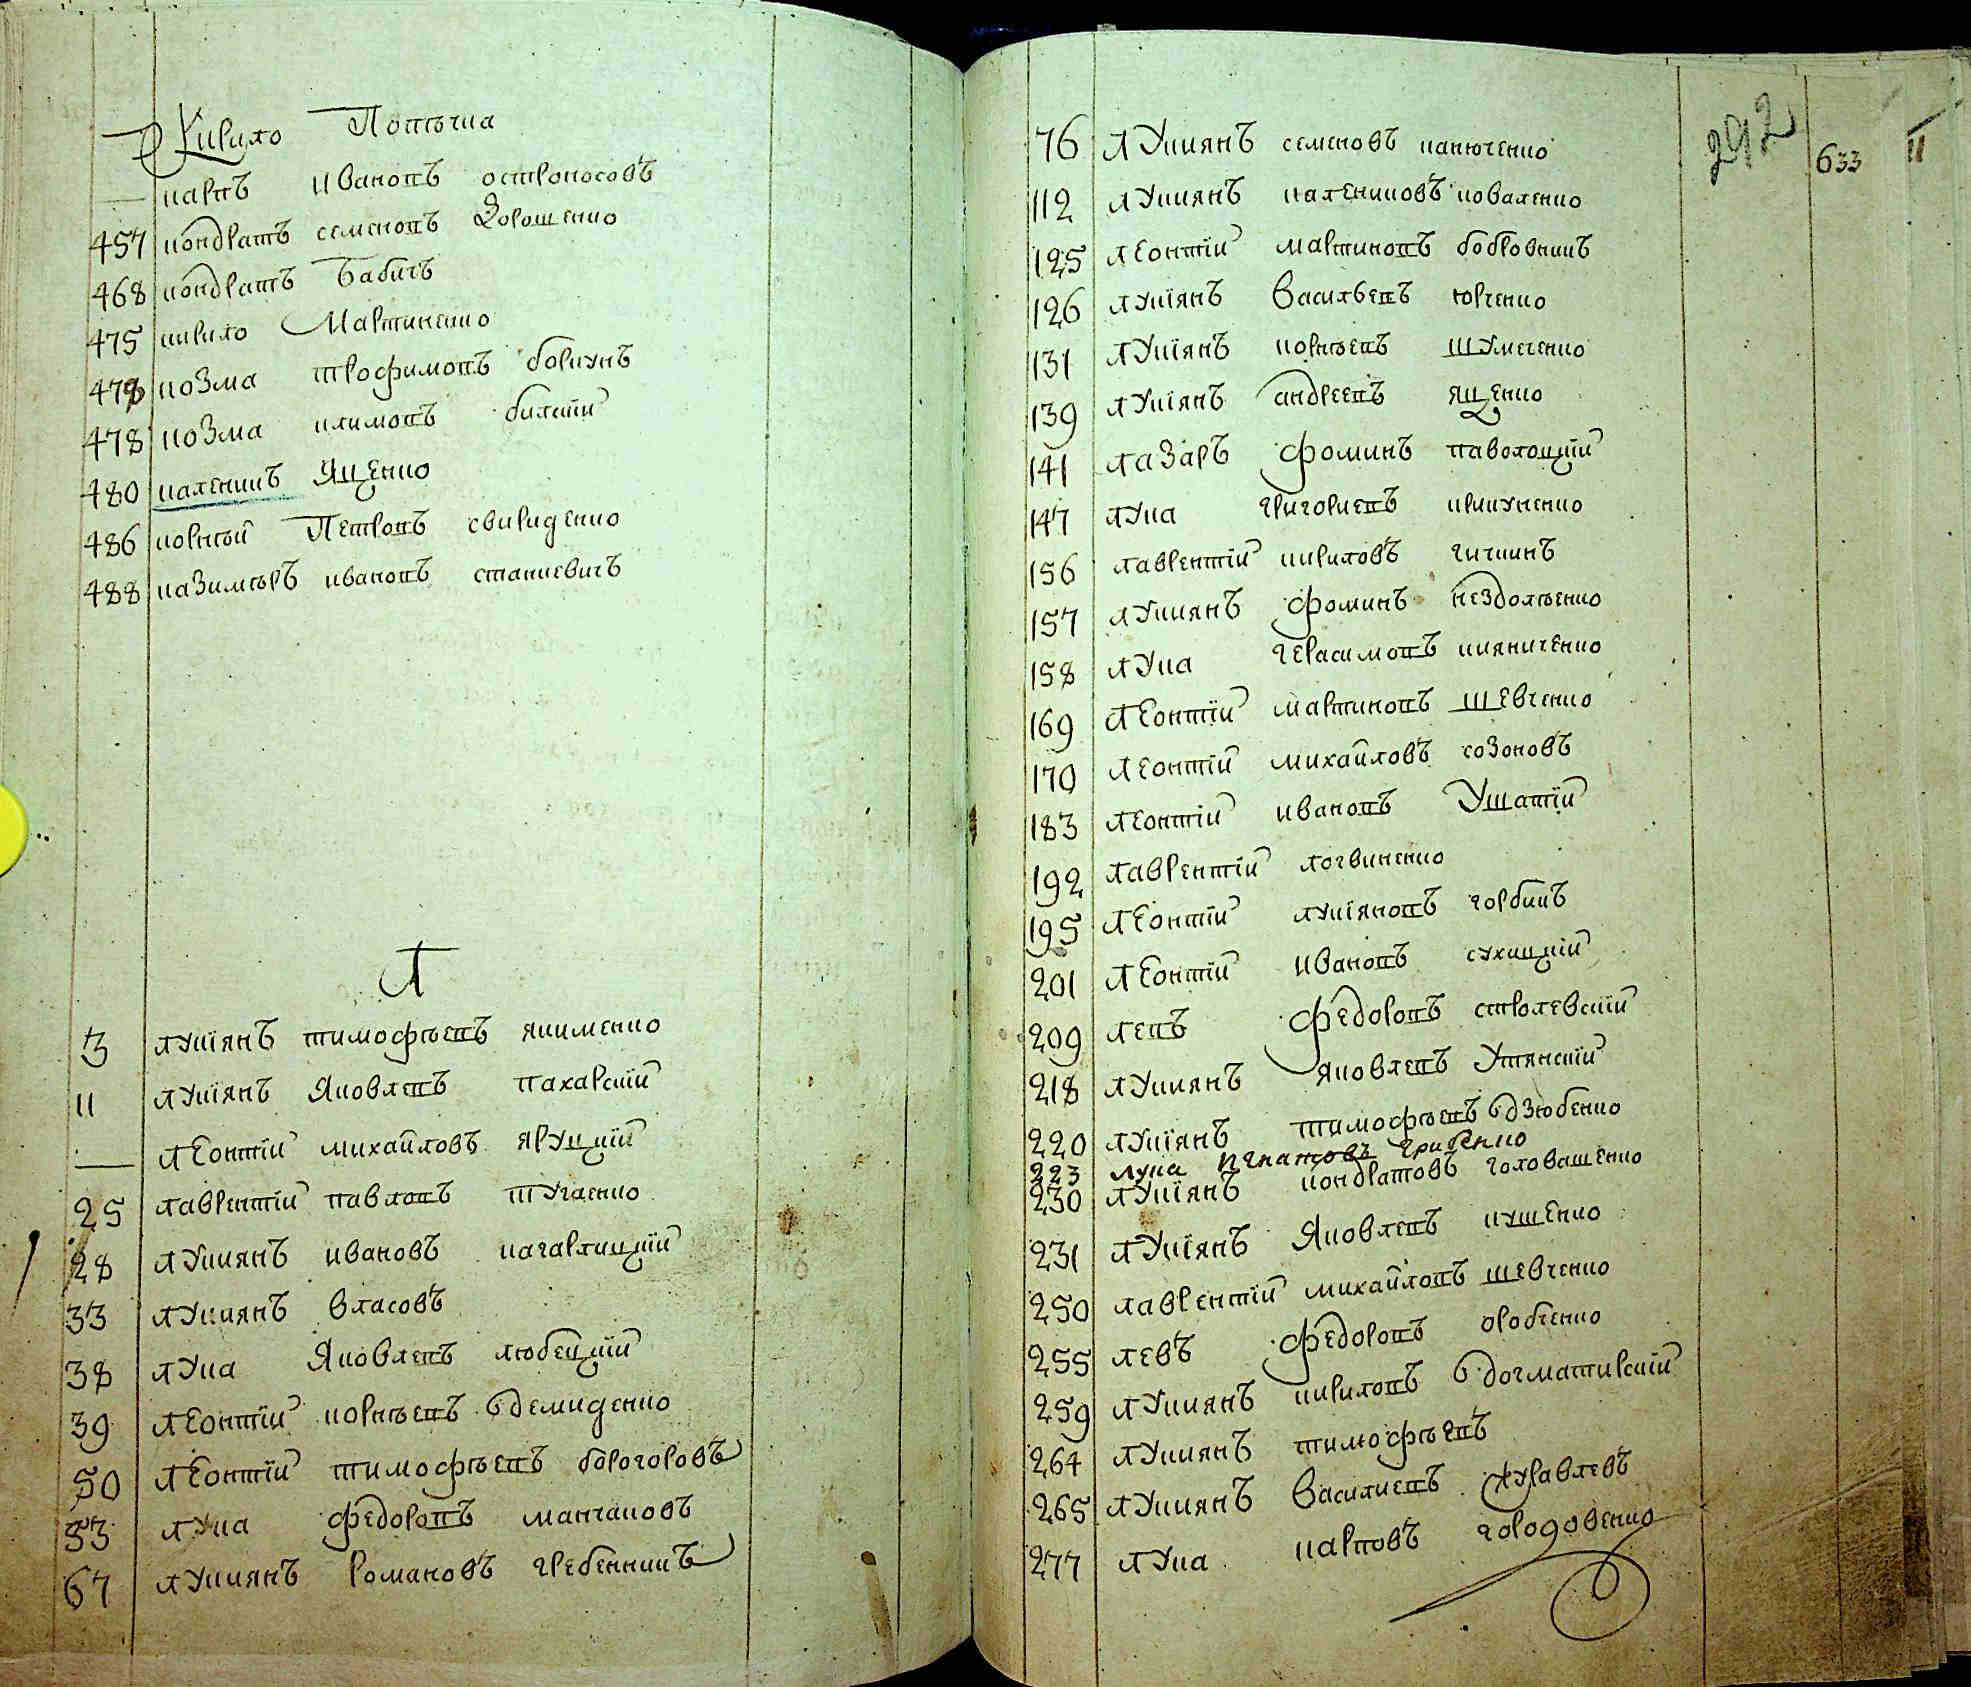 Кирило Потѣчка
— карпъ Ивановъ остроносовъ
457 кондратъ семеновъ Дорошенко
468 кондратъ Бабичъ
475 кирило Мартиненко
478 козма трофимовъ боркунъ
478 козма климовъ билкій
480 каленикъ Ященко
486 корнѣй Петровъ свириденко
488 казимѣръ ивановъ станкевичъ
Л
3 лукіянъ тимофѣевъ якименко
11 лукіянъ Яковлевъ пахарскій
— леонтій михайловъ яруцкій
25 лаврентій павловъ
28 лукиянъ ивановъ кагарлицкій
33 лукиянъ власовъ
38 лука Яковлевъ любецкій
39 леонтій корнѣевъ демиденко
50 леонтій тимофѣевъ богоговъ
53 лука федоровъ манчаковъ
67 лукиянъ романовъ гребенникъ
76 лукиянъ семеновъ канюченко
112 лукиянъ калениковъ коваленко
125 леонтій мартиновъ бобровникъ
126 лукіянъ Васильевъ юрченко
131 лукіянъ корнѣевъ шумеченко
139 лукіянъ андреевъ ященко
141 лазаръ фоминъ паволоцкій
147 лука григориевъ крикуненко
156 лаврентій кириловъ кичкинъ
157 лукиянъ фоминъ нездолѣенко
158 лука герасимовъ кияниченко
169 леонтій мартиновъ шевченко
170 леонтій михайловъ созоновъ
183 леонтій ивановъ Ушатій
192 лаврентій логвиненко
195 леонтій лукіяновъ горбикъ
201 леонтій ивановъ сухицкій
209 левъ федоровъ стролевскій
218 лукиянъ яковлевъ Утянскій
220 лукіянъ тимофѣевъ дзюбенко
223 лука Игнатовъ гриценко
230 лукіянъ кондратовъ головашенко
231 лукіянъ Яковлевъ кушенко
250 лаврентій михайловъ шевченко
255 левъ федоровъ оробченко
259 лукиянъ кириловъ догматирскій
264 лукиянъ тимофѣевъ
265 лукиянъ Василиевъ журавлевъ
277 лука карповъ городовенко
292
633
11